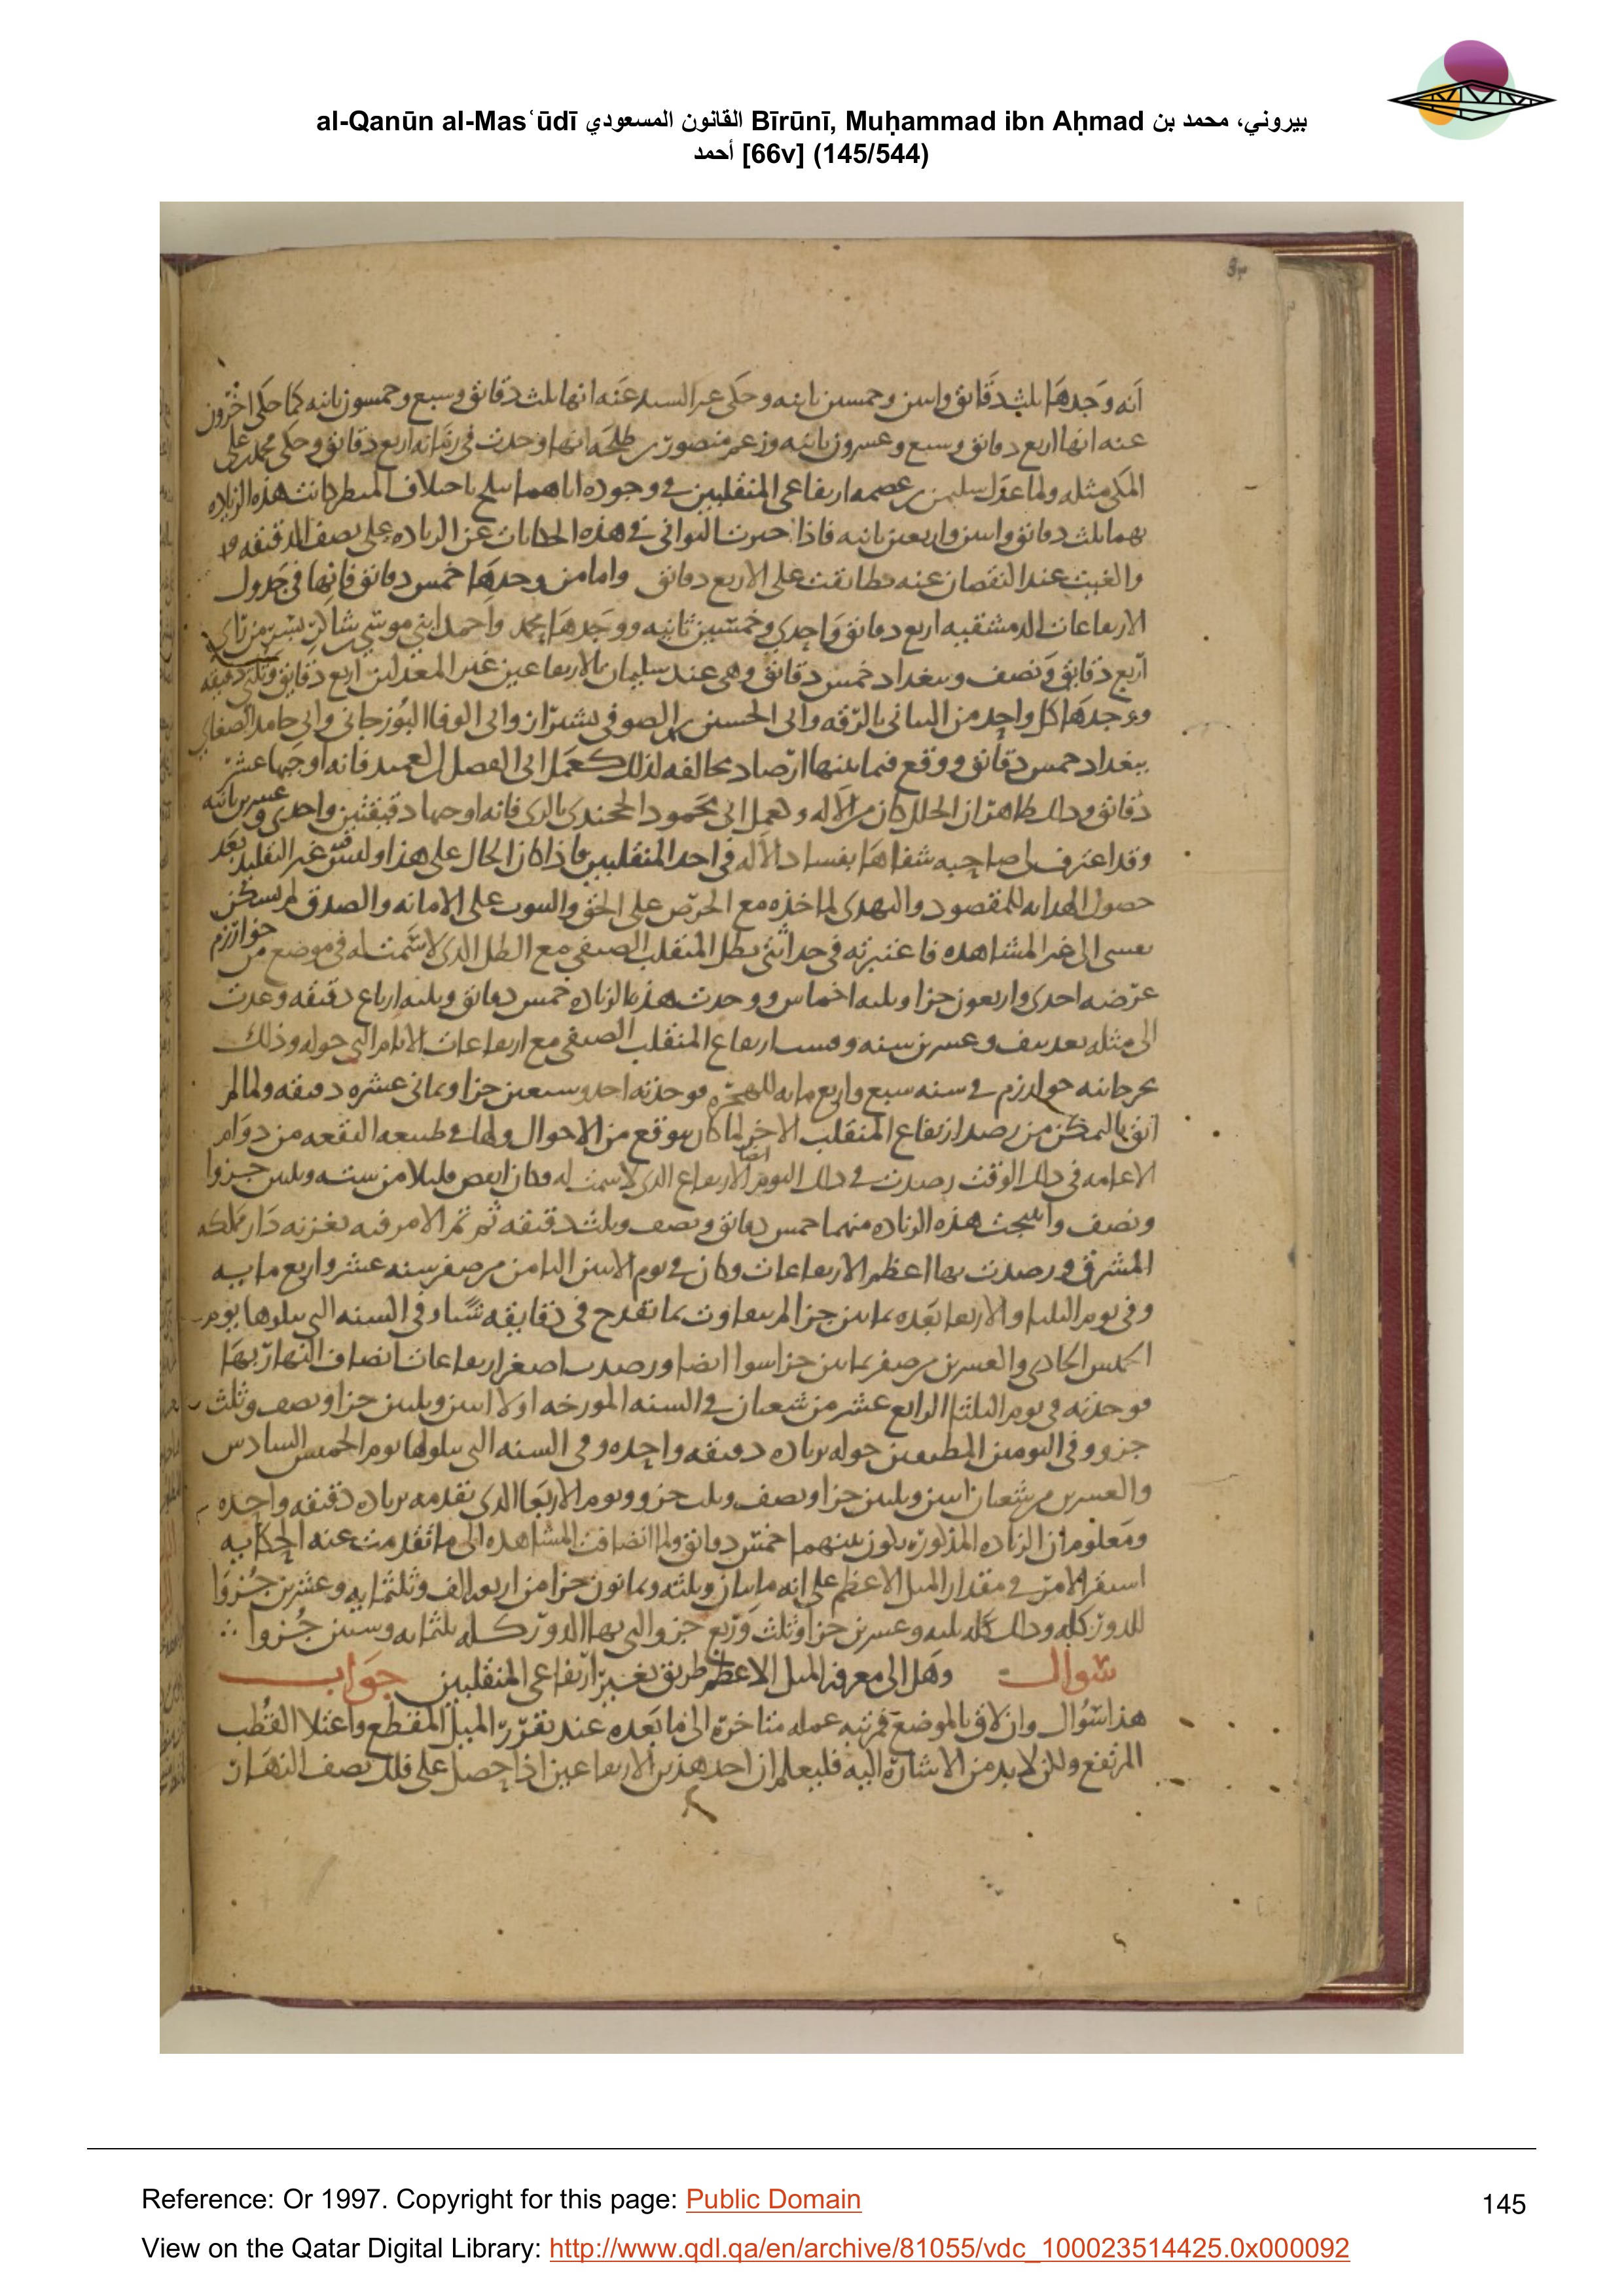 al-Qanūn al-Masʿūdī القانون المسعودي Bīrūnī, Muḥammad ibn Aḥmad بيروني، محمد بن
أحمد [66v] (145/544)
انه وجدها ثلث دقائق واثنين وخمسين ثانيه وحكى عنه انها ثلث دقائق وسبع وخمسون ثانيه كما حكى اخرون
عنه انها اربع دقائق وسبع وعشرون ثانيه وزعم منصور بن طلحه انها وجدت في زمانه اربع دقائق وحكى محمد بن على
المكى مثله ولما عول سليمن بن عصمه ارتفاعى المنقلبين في وجوده اياهما ببلخ باختلاف المنظر كانت هذه الزياده
بهما ثلث دقائق واثنين واربعين ثانيه فاذا جبرت الثوانى في هذه الحكايات عن الزياده على نصف الدقيقه
والغيت عند النقصان عنه تطابقت على الاربع دقائق واما من وجدها خمس دقائق فانها في جدول
الارتفاعات الدمشقيه اربع دقائق واحدى وخمسين ثانيه ووجدها محمد واحمد ابنى موسى بن شاكر بسر من راى
اربع دقائق ونصف وببغداد خمس دقائق وهى عند سليمان بالارتفاعين غير المعدلين اربع دقائق وثلثى دقيقه
ووجدها كل واحد من البتانى بالرقه وابى الحسين بن الصوفى بشيراز وابى الوفا البوزجانى وابى حامد الصغانى
ببغداد خمس دقائق ووقع فيما بينها ارصاد مخالفه لذلك كعمل ابى الفضل بن العميد فانه اوجبها عشر
دقائق وذلك ظاهر ان الخلل كان من الآله وعمل ابى محمود الخجندى بالرى فانه اوجبها دقيقتين واحدى وعشرين ثانيه
وقد اعترف لى صاحبه شفاها بفساد الآله في احد المنقلبين فاذا كان الحال على هذا وليس غير التقليد بعد
حصول الهدايه للمقصود والتهدى لماخذه مع الحرص على الحق والثبوت على الامانه والصدق لم تسكن
نفسى الى غير المشاهده فاعتبرته في حداثتى بظل المنقلب الصيفى مع الظل الذى لا سمت له في موضع من خوارزم
عرضه احدى واربعون جزا وثلثه اخماس ووجدت هذه الزياده خمس دقائق وثلثه ارباع دقيقه وعدت
الى مثله بعد نيف وعشرين سنه وقست ارتفاع المنقلب الصيفى مع ارتفاعات الايام التى حوله وذلك
بجرجانيه خوارزم في سنه سبع واربع مايه للهجره فوجدته احد وسبعين جزا وثمانى عشره دقيقه ولما لم
اثق بالتمكن من رصد ارتفاع المنقلب الاخر لما كان يتوقع من الاحوال ولما في طبيعه البقعه من دوام
الاغامه في ذلك الوقت رصدت في ذلك اليوم ايضا الارتفاع الذى لا سمت له وكان انقص قليلا من سته وثلثين جزوا
ونصف وانتجت هذه الزياده منهما خمس دقائق ونصف وثلث دقيقه ثم تم الامر فيه بغزنه دار مملكه
المشرق ورصدت بها اعظم الارتفاعات وكان في يوم الاثنين الثامن من صفر سنه عشر واربع مايه
وفى يوم الثلثا والاربعا بعده ثمانين جزا لم يتفاوت بما يقدح في دقايقه شيا وفى السنه التى تتلوها يوم
الخميس الحادى والعشرين من صفر ثمانين جزا سوا ايضا ورصدت اصغر ارتفاعات انصاف النهار بها
فوجدته في يوم الثلثا الرابع عشر من شعبان في السنه المورخه اولا اثنين وثلثين جزا ونصف وثلث
جزو وفى اليومين المطيفين حوله بزياده دقيقه واحده وفى السنه التى تتلوها يوم الخميس السادس
والعشرين من شعبان اثنين وثلثين جزا ونصف وثلث جزو ويوم الاربعا الذى تقدمه بزياده دقيقه واحده
ومعلوم ان الزياده المذكوره تكون بينهما خمس دقائق ولما انضافت المشاهده الى ما تقدمت عنه الحكايه
استقر الامر في مقدار الميل الاعظم على انه مايتان وثلثه وثمانون جزا من اربعه الف وثلثمايه وعشرين جزوا
للدور كله وذلك كله ثلثه وعشرين جزا وثلث وربع جزو التى بها الدور كله ثلثمايه وستين جزوا ∴
سوال وهل الى معرفه الميل الاعظم طريق بغير ارتفاعى المنقلبين جواب
هذا سوال وان لاق بالموضع فمرتبه عمله متاخره الى ما بعده عند تقرر الميل المقطع واعتلا القطب
المرتفع ولكن لا بد من الاشاره اليه فليعلم ان احد هذين الارتفاعين اذا حصل على فلك نصف النهار
Reference: Or 1997. Copyright for this page: Public Domain
145
View on the Qatar Digital Library: http://www.qdl.qa/en/archive/81055/vdc_100023514425.0x000092